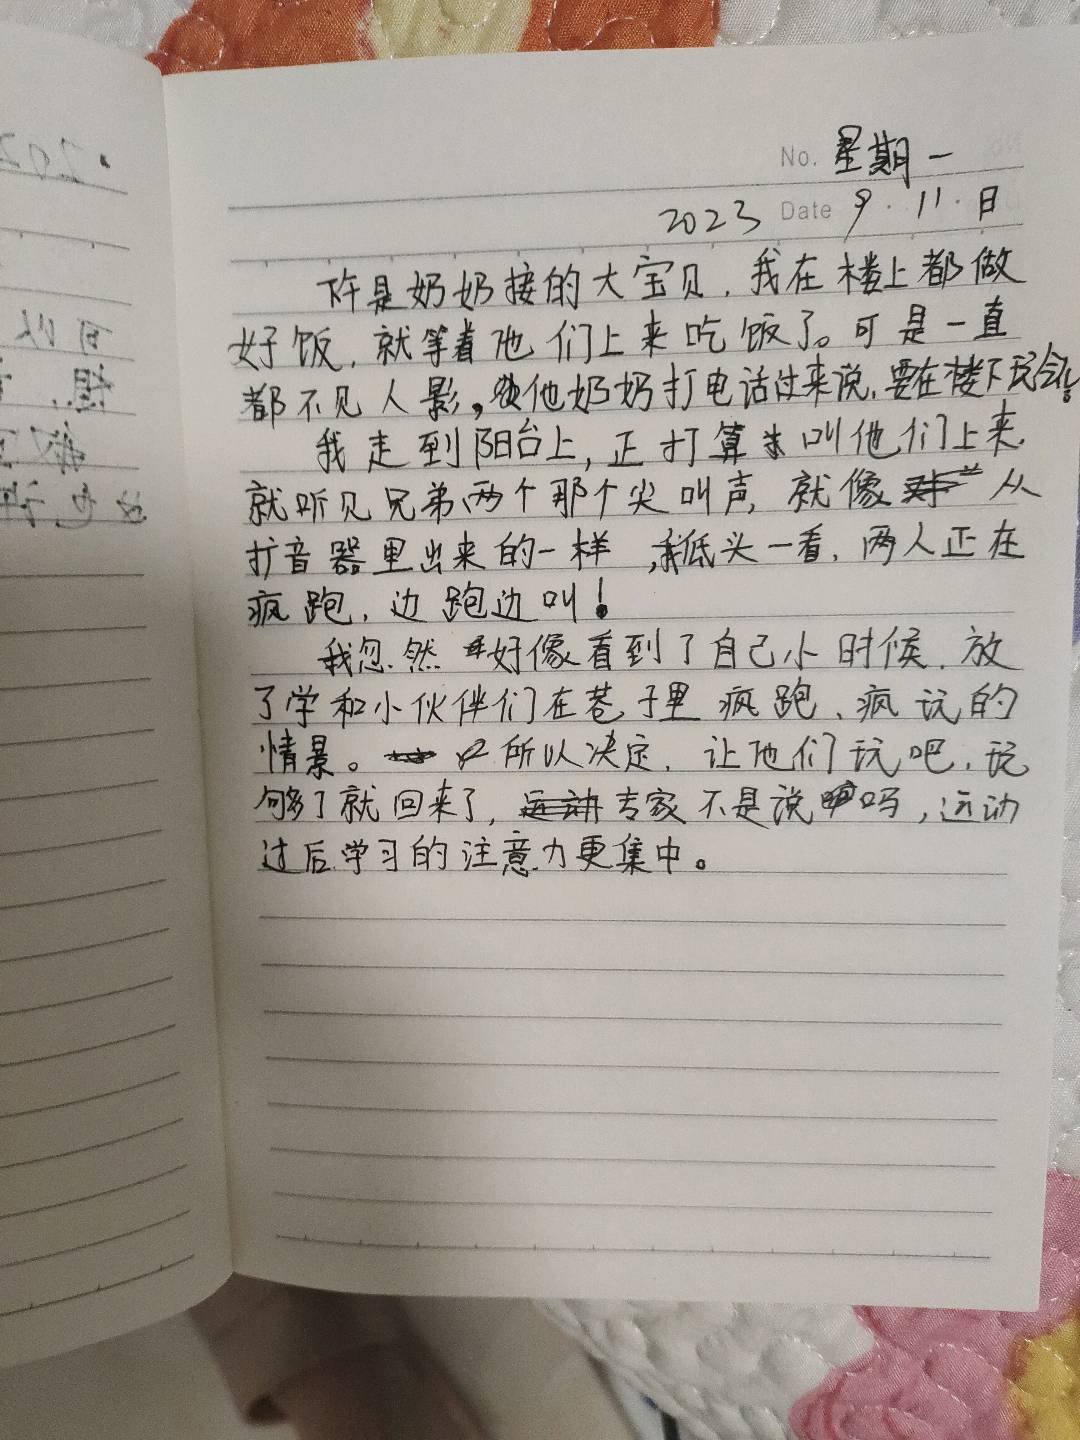 No. 星期一
2023 Date 9·11·日
下午是奶奶接的大宝贝,我在楼上都做
好饭,就等着他们上来吃饭了。可是一直
都不见人影。他奶奶打电话过来说,要在楼下玩会儿
我走到阳台上,正打算叫他们上来,
就听见兄弟两个那个尖叫声,就像从
扩音器里出来的一样,我低头一看,两人正在
疯跑,边跑边叫!
我忽然好像看到了自己小时候,放
了学和小伙伴们在巷子里疯跑、疯玩的
情景。所以决定,让他们玩吧,玩
够了就回来了,专家不是说吗,运动
过后学习的注意力更集中。